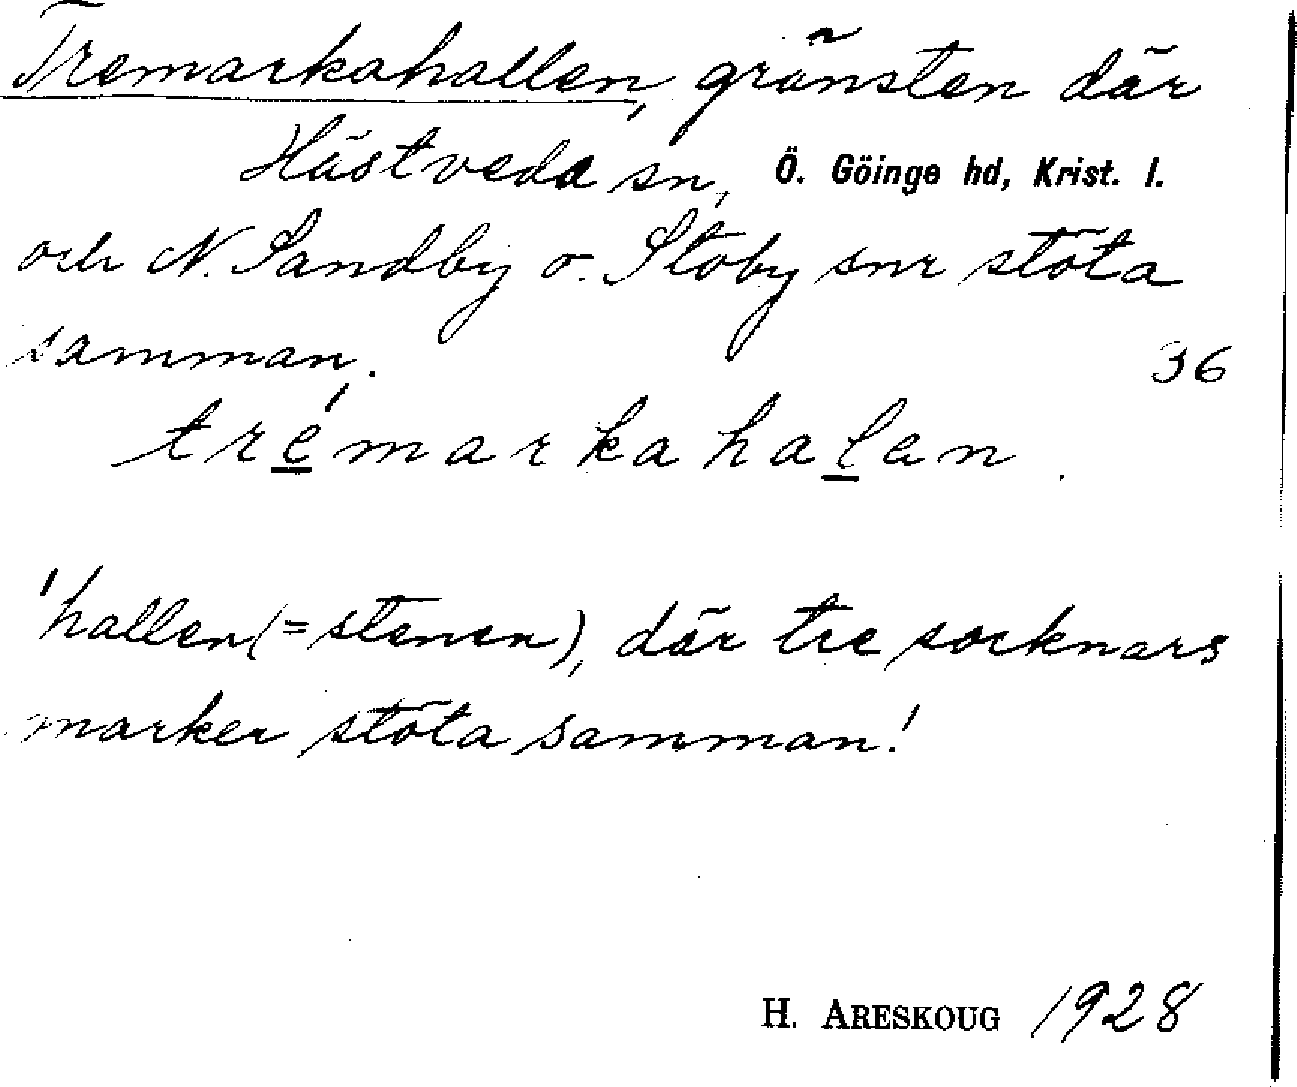 Tremarkahallen, gränsten där
Hästveda sn, Ö. Göinge hd, Krist. l.
och N. Sandby o. Stoby snr stöta
samman.
36
trémarkahalen.
'hallen (= stenen), där tre socknars
marker stöta samman!
H. ARESKOUG 1928